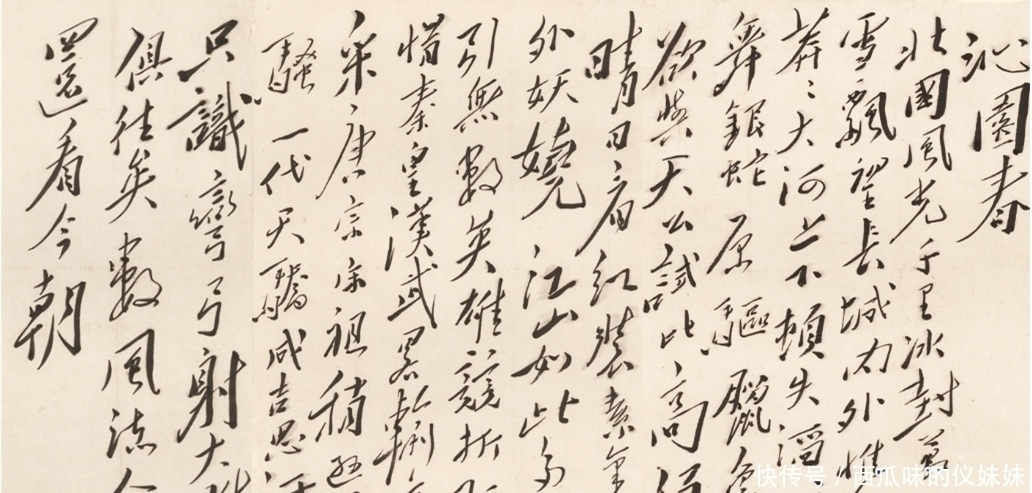 沁園春
北國風光千里冰封萬
雪飄望長城内外惟
莽〻大河上下頓失滔
舞銀蛇原驅臘象
欲與天公試比高須
晴日看紅裝素裹
外妖嬈江山如此多
引無數英雄競折
惜秦皇漢武畧輸文
采唐宗宋祖稍遜
騷一代天驕成吉思汗
只識彎弓射大
俱往矣數風流人
還看今朝
快传号/西瓜味的仪妹妹